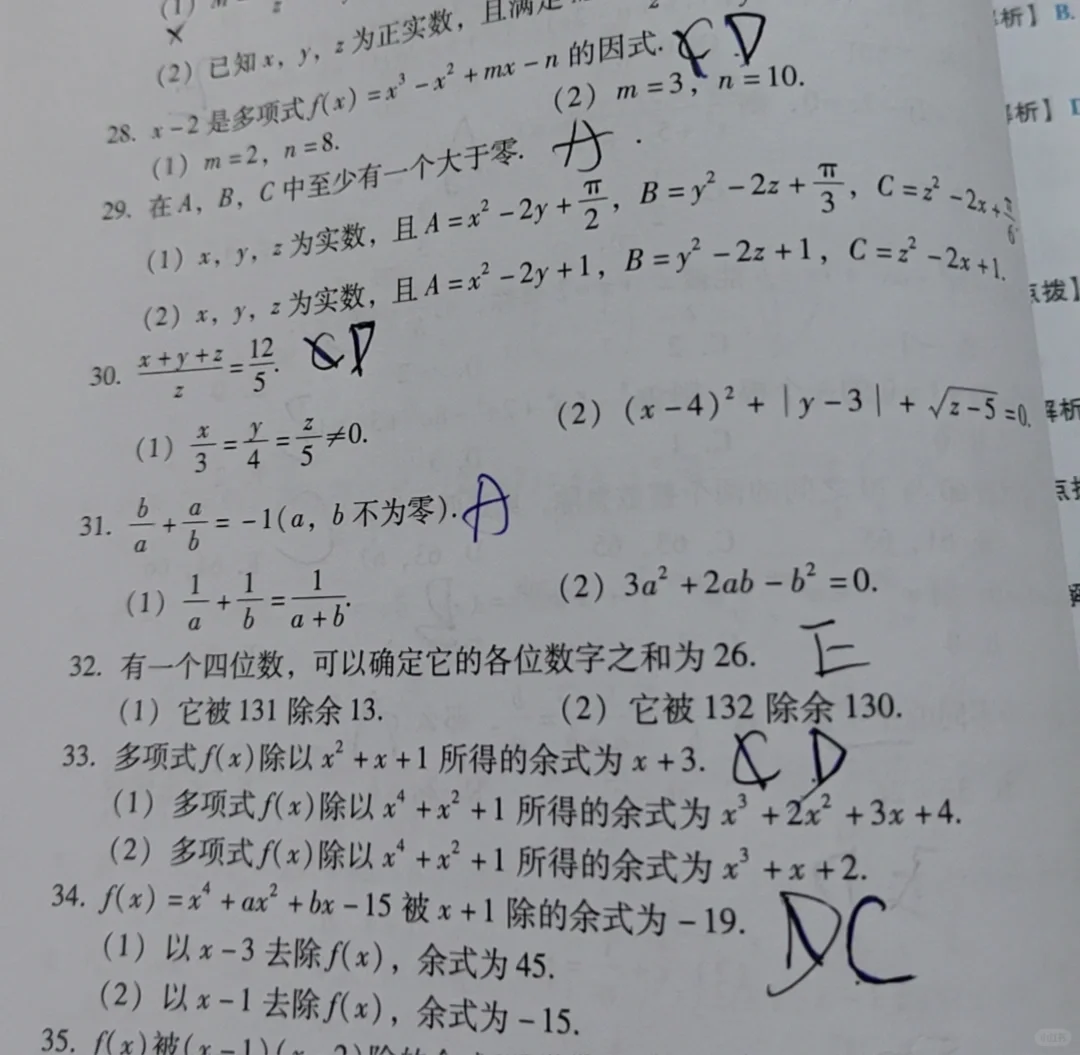 (2) 已知 x, y, z 为正实数, 且满足
28. x-2 是多项式 f(x)=x³-x²+mx-n 的因式. C D
(1) m=2, n=8. (2) m=3, n=10.
29. 在 A, B, C 中至少有一个大于零. A
(1) x, y, z 为实数, 且 A=x²-2y+π/2, B=y²-2z+π/3, C=z²-2x+π/6
(2) x, y, z 为实数, 且 A=x²-2y+1, B=y²-2z+1, C=z²-2x+1.
30. (x+y+z)/z=12/5. C D
(1) x/3=y/4=z/5≠0. (2) (x-4)²+|y-3|+√(z-5)=0.
31. b/a+a/b=-1(a, b 不为零). A
(1) 1/a+1/b=1/(a+b). (2) 3a²+2ab-b²=0.
32. 有一个四位数, 可以确定它的各位数字之和为 26. E
(1) 它被 131 除余 13. (2) 它被 132 除余 130.
33. 多项式 f(x) 除以 x²+x+1 所得的余式为 x+3. C D
(1) 多项式 f(x) 除以 x⁴+x²+1 所得的余式为 x³+2x²+3x+4.
(2) 多项式 f(x) 除以 x⁴+x²+1 所得的余式为 x³+x+2.
34. f(x)=x⁴+ax²+bx-15 被 x+1 除的余式为 -19. D C
(1) 以 x-3 去除 f(x), 余式为 45.
(2) 以 x-1 去除 f(x), 余式为 -15.
35. f(x)被(x-1)(x-2)除的
析】 B.
析】
点拨】
解析
点拨